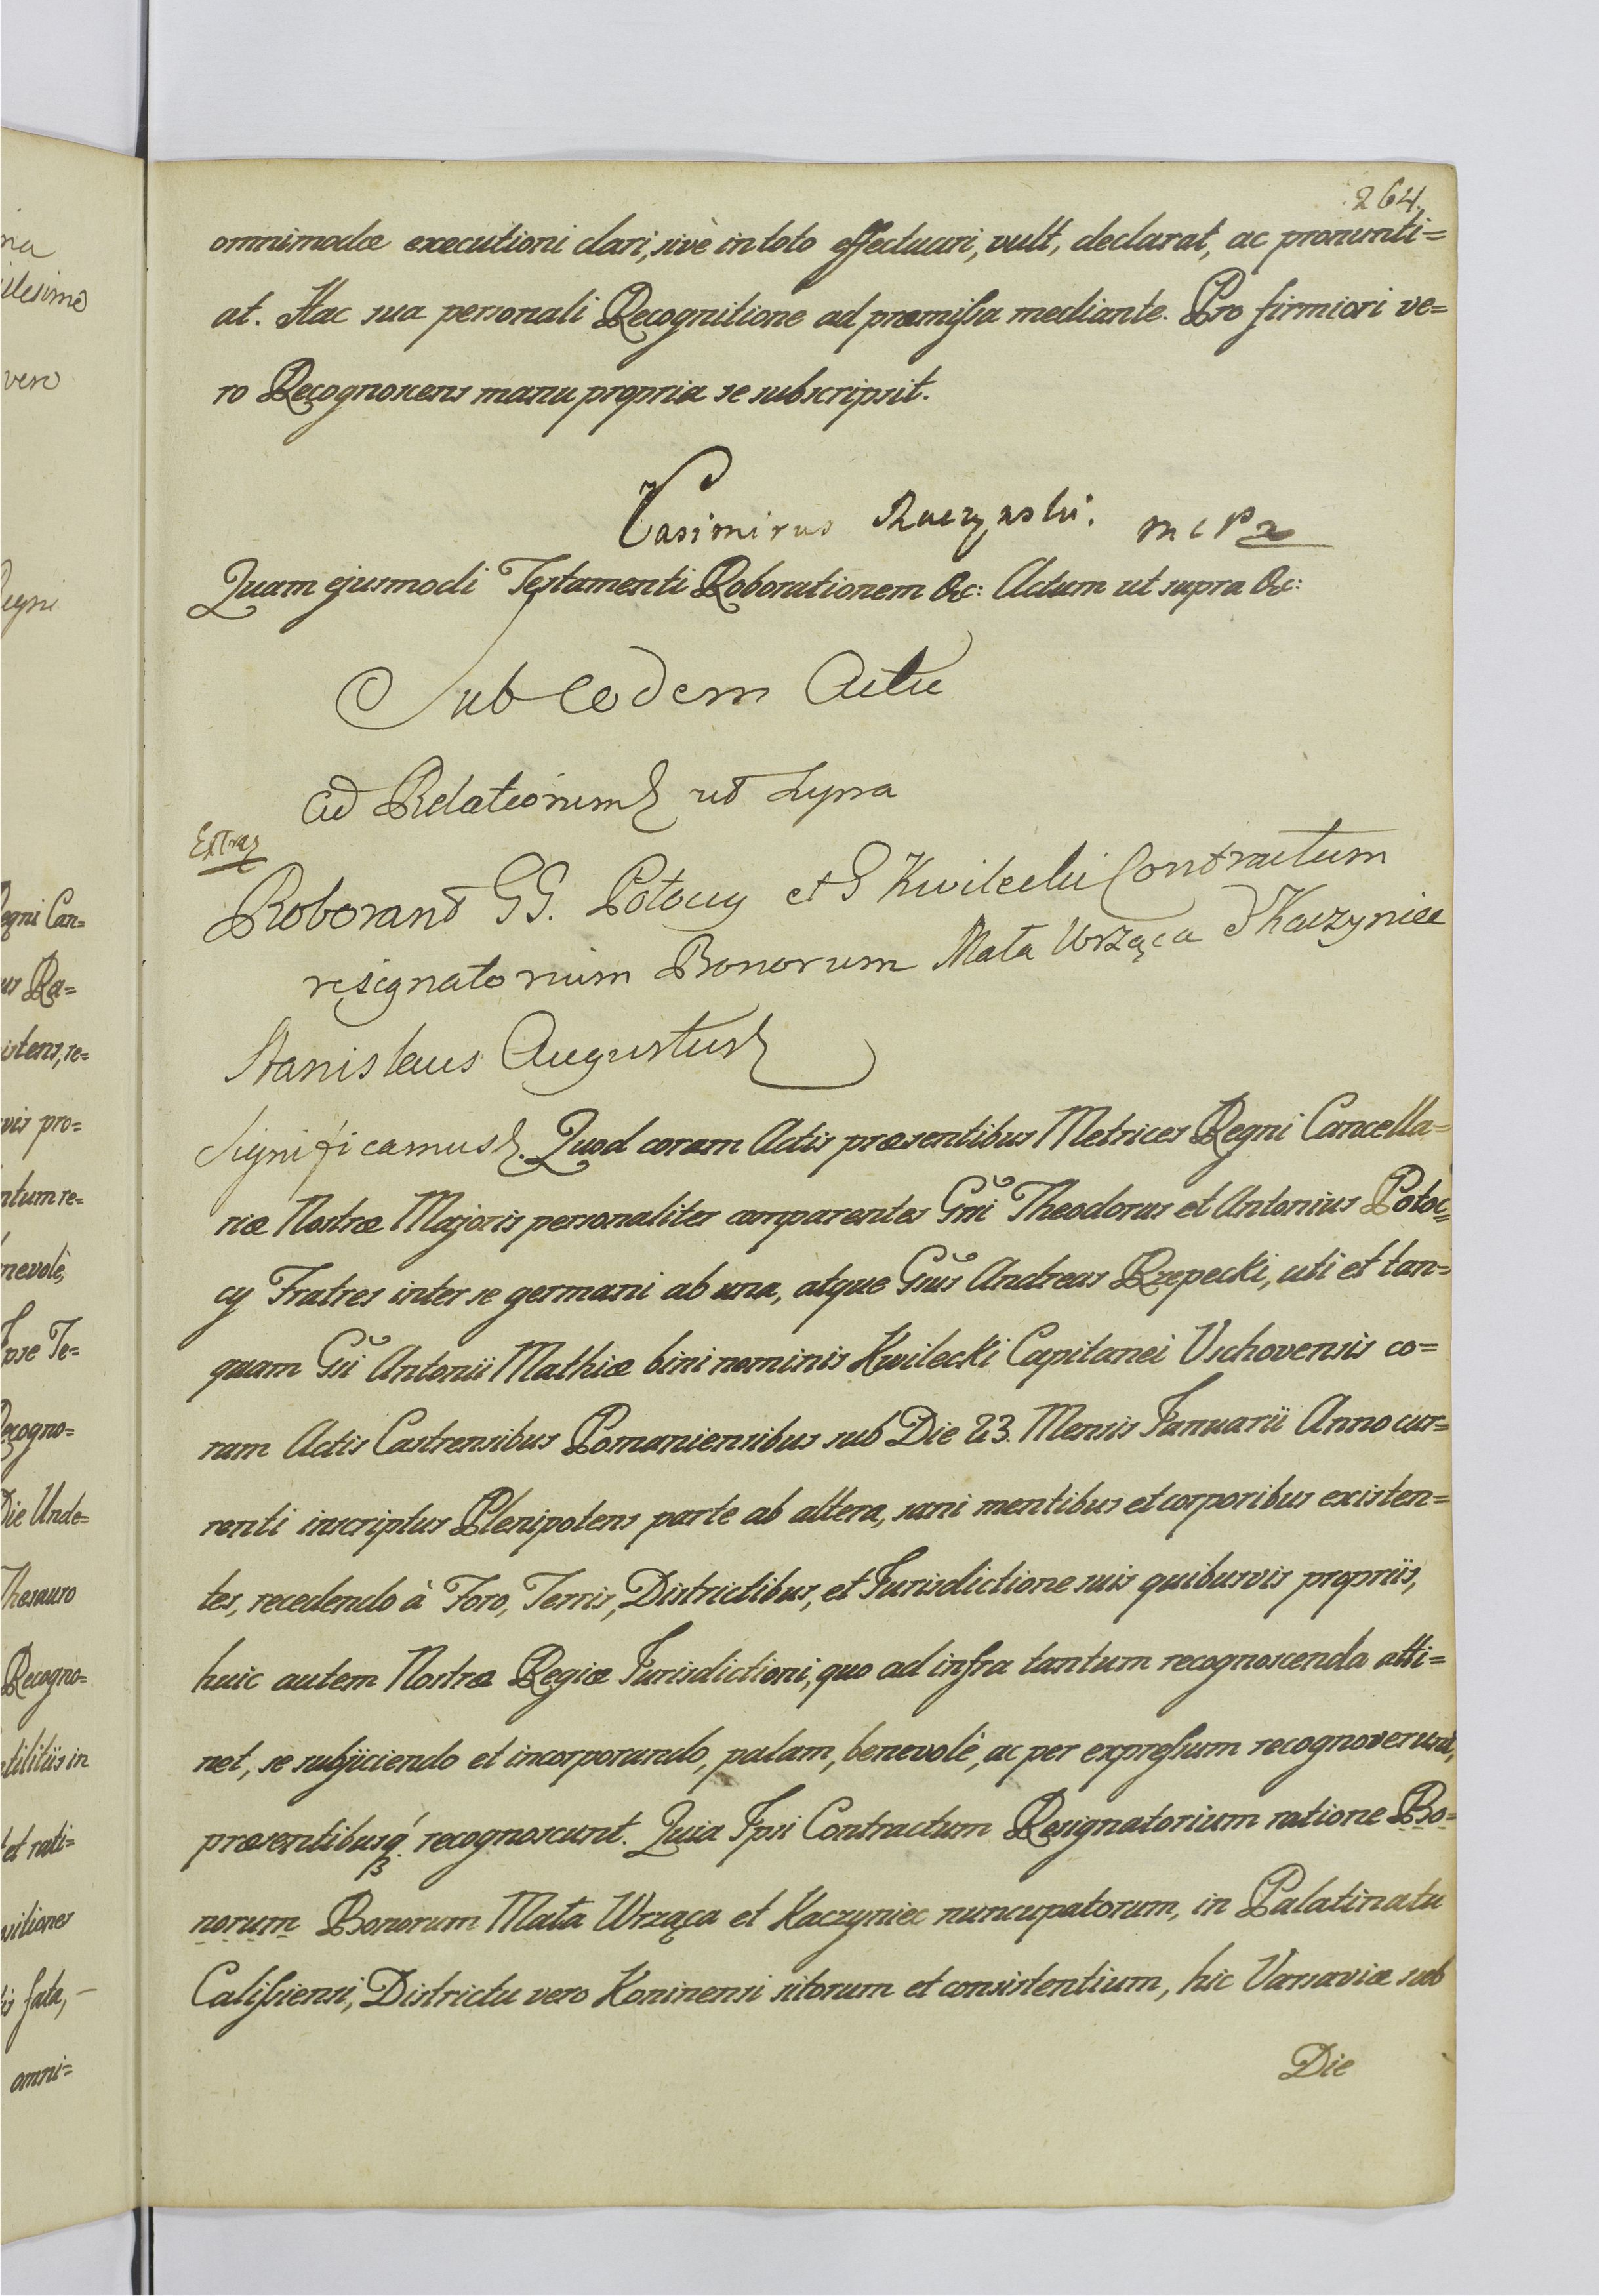 264.
omnimodæ executioni dari, sivè in toto effectuari, vult, declarat, ac pronunti=
at. Hac sua personali Recognitione ad præmissa mediante. Pro firmiori ve=
ro Recognoscens manu propria se subscripsit.
Casimirus Raczynski. mpp
Quam ejusmodi Testamenti Roborationem &c: Actum ut supra &c:
Sub eodem Actu
Ad Relationem ut supra
Extra
Roborant GG. Potoccy et G Kwilecki Contractum
resignatorium Bonorum Mała Wrząca et Kaczyniec
Stanislaus Augustus
Significamus. Quod coram Actis præsentibus Metrices Regni Cancella=
riæ Nostræ Majoris personaliter comparentes Gni Theodorus et Antonius Potoc=
cy Fratres inter se germani ab una, atque Gnus Andreas Rzepecki, uti et tan=
quam Gni Antonii Mathiæ bini nominis Kwilecki Capitanei Vschovensis co=
ram Actis Castrensibus Posnaniensibus sub Die 23. Mensis Januarii Anno cur=
renti inscriptus Plenipotens parte ab altera, sani mentibus et corporibus existen=
tes, recedendo à Foro, Terris, Districtibus, et Jurisdictione suis quibusvis propriis,
huic autem Nostræ Regiæ Jurisdictioni, quo ad infra tantum recognoscenda atti=
net, se subjiciendo et incorporando, palam, benevolè, ac per expressum recognoverunt,
præsentibusq. recognoscunt. Quia Ipsi Contractum Resignatorium ratione Bo=
norum Bonorum Mała Wrząca et Kaczyniec nuncupatorum, in Palatinatu
Calissiensi, Districtu vero Koninensi sitorum et consistentium, hic Varsaviæ sub
Die